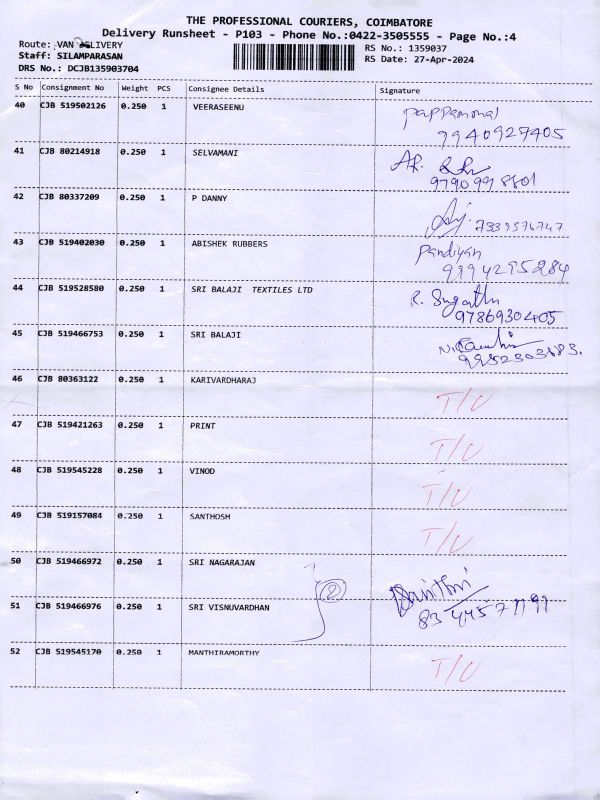 THE PROFESSIONAL COURIERS, COIMBATORE
Delivery Runsheet - P103 - Phone No.:0422-3505555 - Page No.:4
Route: VAN DELIVERY RS No.: 1359037
Staff: SILAMPARASAN RS Date: 27-Apr-2024
DRS No.: DCJB135903704
S No Consignment No Weight PCS Consignee Details Signature
40 CJB 519502126 0.250 1 VEERASEENU pappammal
9940927405
41 CJB 80214918 0.250 1 SELVAMANI
42 CJB 80337209 0.250 1 P DANNY
7339576747
43 CJB 519402030 0.250 1 ABISHEK RUBBERS Pandiyan
9994295284
44 CJB 519528580 0.250 1 SRI BALAJI TEXTILES LTD R.
9786930405
45 CJB 519466753 0.250 1 SRI BALAJI
46 CJB 80363122 0.250 1 KARIVARDHARAJ T/C
47 CJB 519421263 0.250 1 PRINT T/C
48 CJB 519545228 0.250 1 VINOD T/C
49 CJB 519157084 0.250 1 SANTHOSH T/C
50 CJB 519466972 0.250 1 SRI NAGARAJAN 2
51 CJB 519466976 0.250 1 SRI VISNUVARDHAN
52 CJB 519545170 0.250 1 MANTHIRAMORTHY T/C